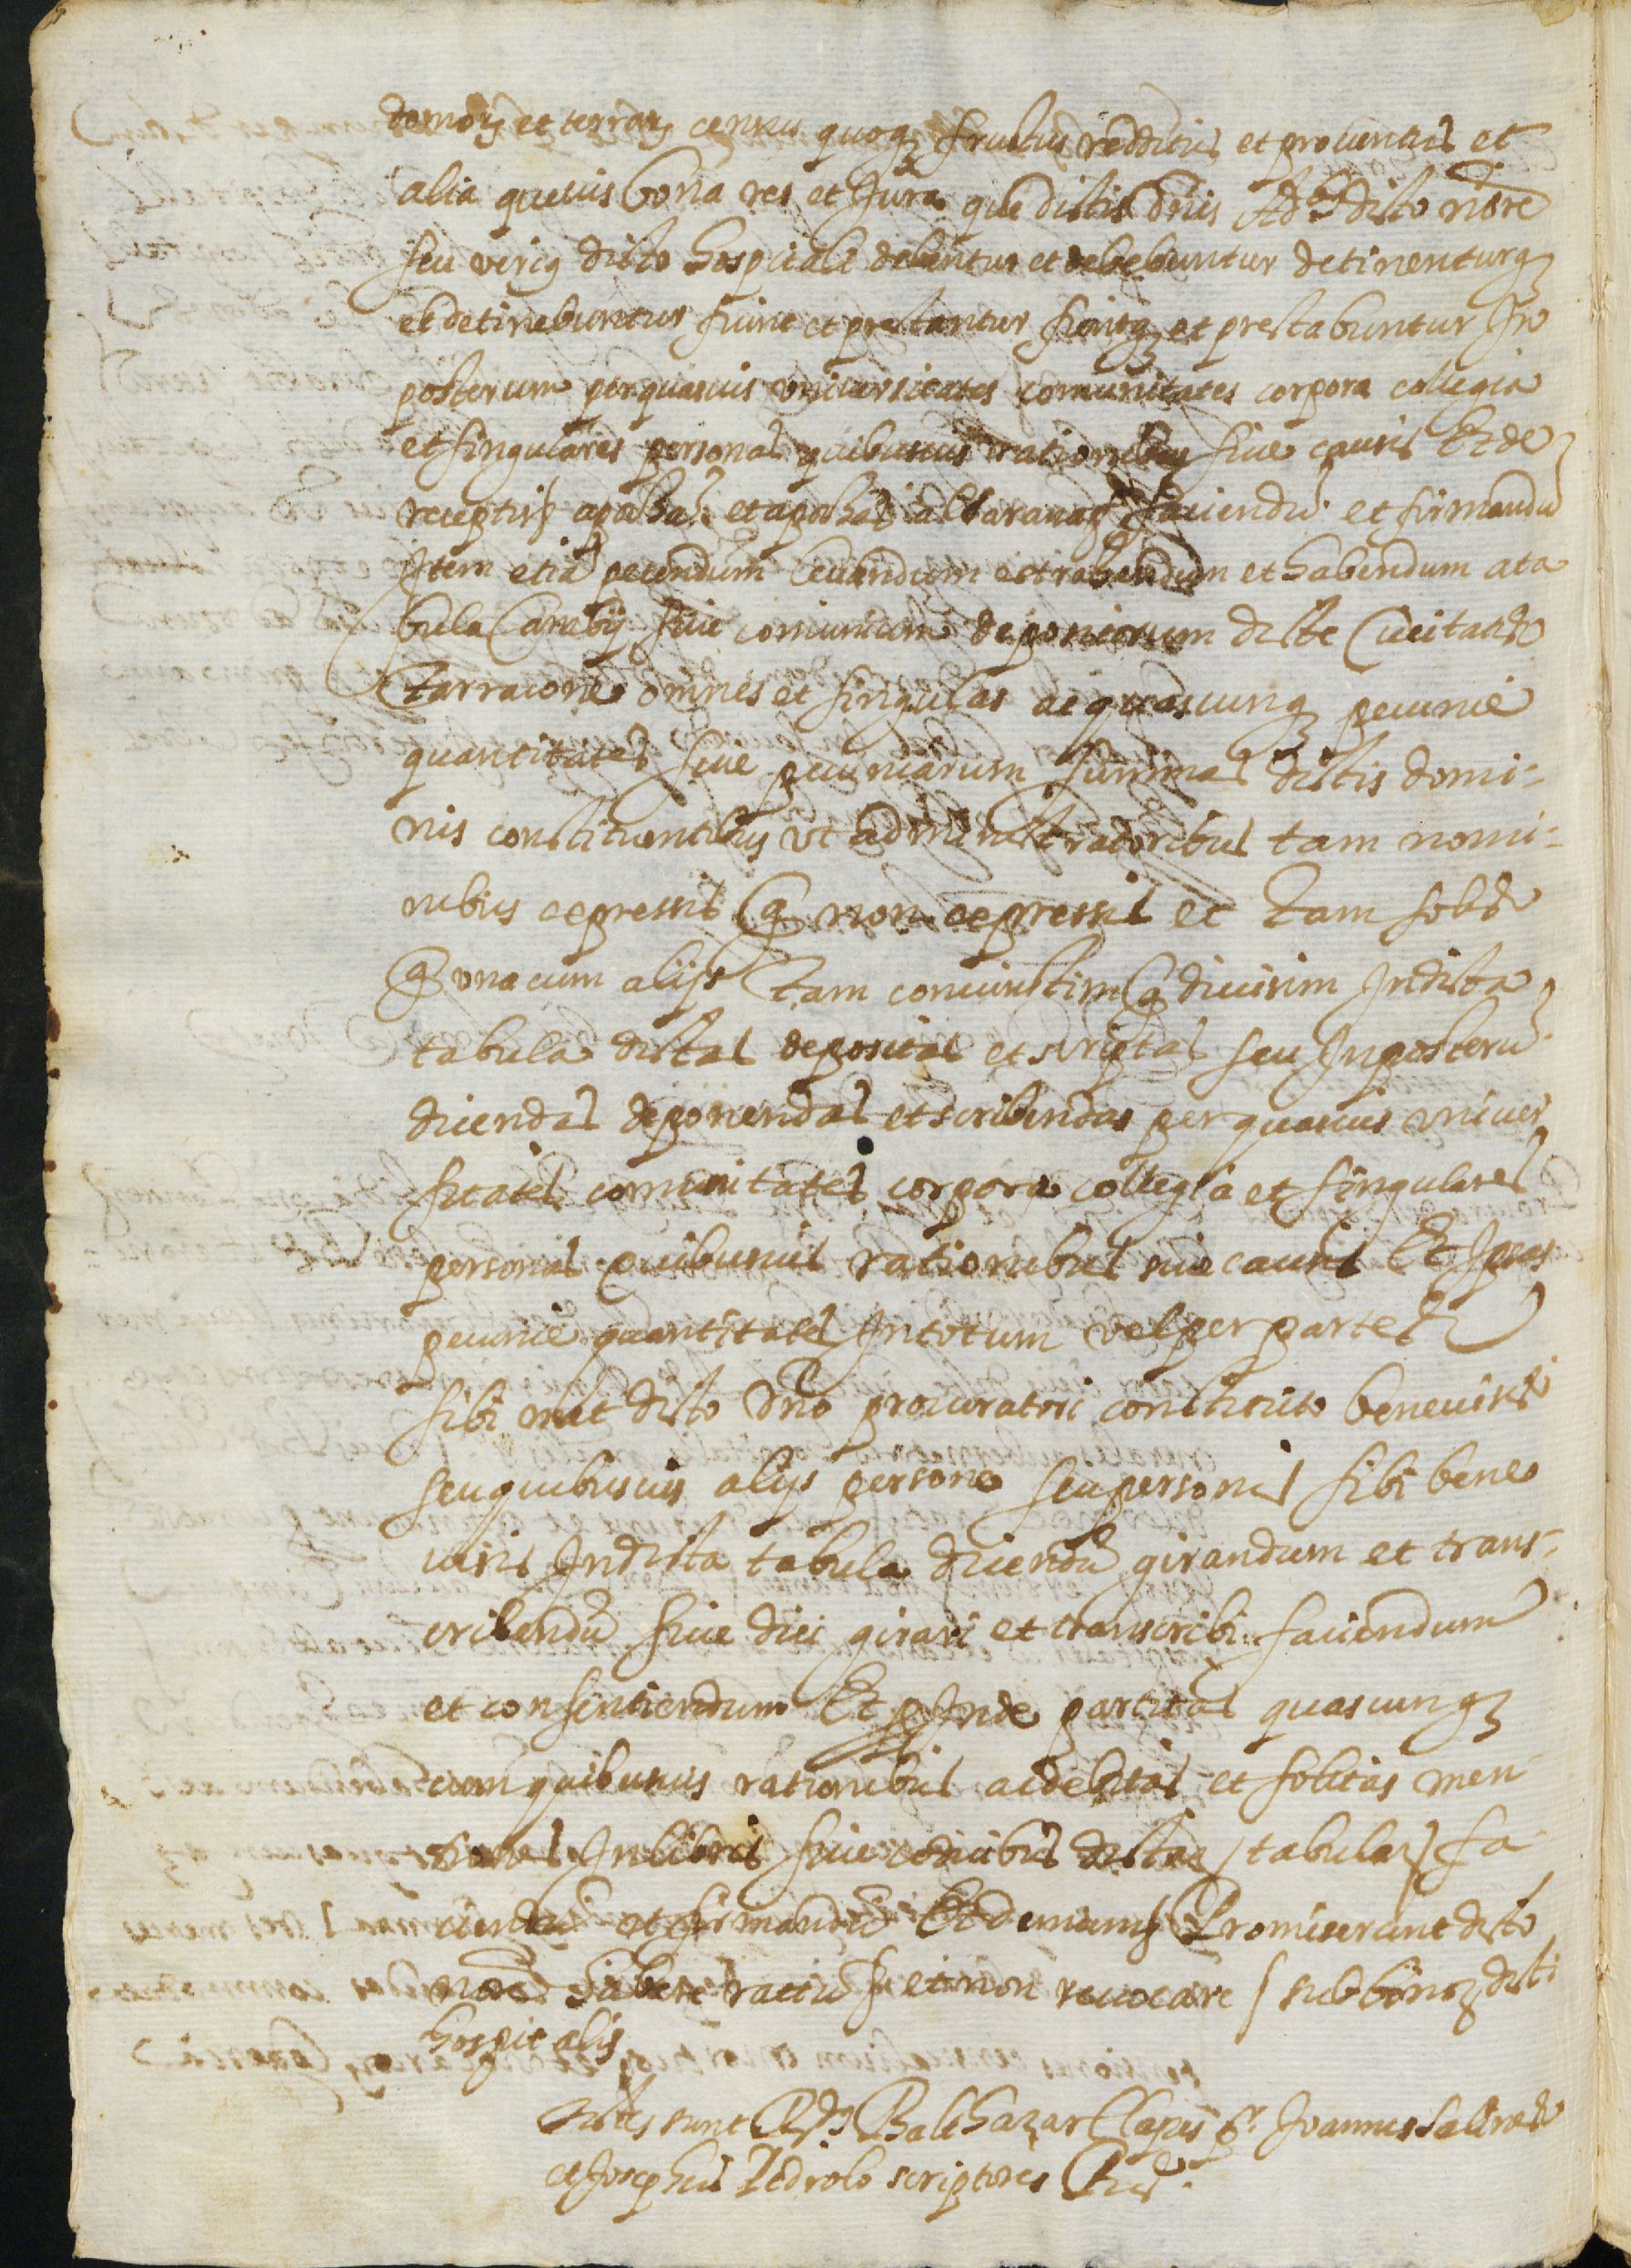 domorũ et terrarũ census quoqȝ fructus redditus et prouentus et
alia queuis bona res et Jura que dictis dñis Adᵇᵘˢ dicto nõie
seu veriq dicto hospitali debentur et debebuntur detinenturqȝ
et detinebuntur fiunt et prestantur fientqȝ et prestabuntur In
posterum per quasuis vniuersitates comunitates corpora collegia
et singulares personas quibusuis rationibus siue causis Et de
receptis apohã et apohas albaranaqȝ faciendũ et firmandũ
Item etiã petendum leuandum extrahendum et habendum a ta
bula Cambÿ siue comunium depositorum dicte Ciuitatis
Tarracone omnes et singulas ac quascunqȝ pecunie
quantitates siue pecuniarum summas dictis domi-
nis constituentibus vt administratoribus tam nomi-
nibus expressis q̃ non expressis et tam solis
q̃ vna cum alijs tam coniunctim q̃ diuisim In dicta
tabula dictas depositas et scriptas seu In posterũ
dicendas deponendas et scribendas per quasuis vniuer
sitates comunitates corpora collegia et singulares
personas quibusuis rationibus siue causis Et Ipsas
pecunie quantitates In totum vel per partes
sibi met dicto dño procuratori constituto beneuisis
seu quibusuis alijs persone seu personis sibi bene
uisis In dicta tabula dicendũ girandum et trans-
cribendũ siue dici girari et transcribi faciendum
et consentiendum Et p̱ Inde partitas quascunqȝ
cum quibusuis rationibus ac debitas et solitas men
tiones In libris siue codicibus dictae tabulae fa
ciendũ et firmandũ Et demum Promiserunt dicto
nõie habere ratũ et non reuocare sub bonorȝ dicti
hospitalis
Testes sunt Rdᵘˢ Balthazar Clapes pʳ Joannes
et Josephus Pedrolo scriptores